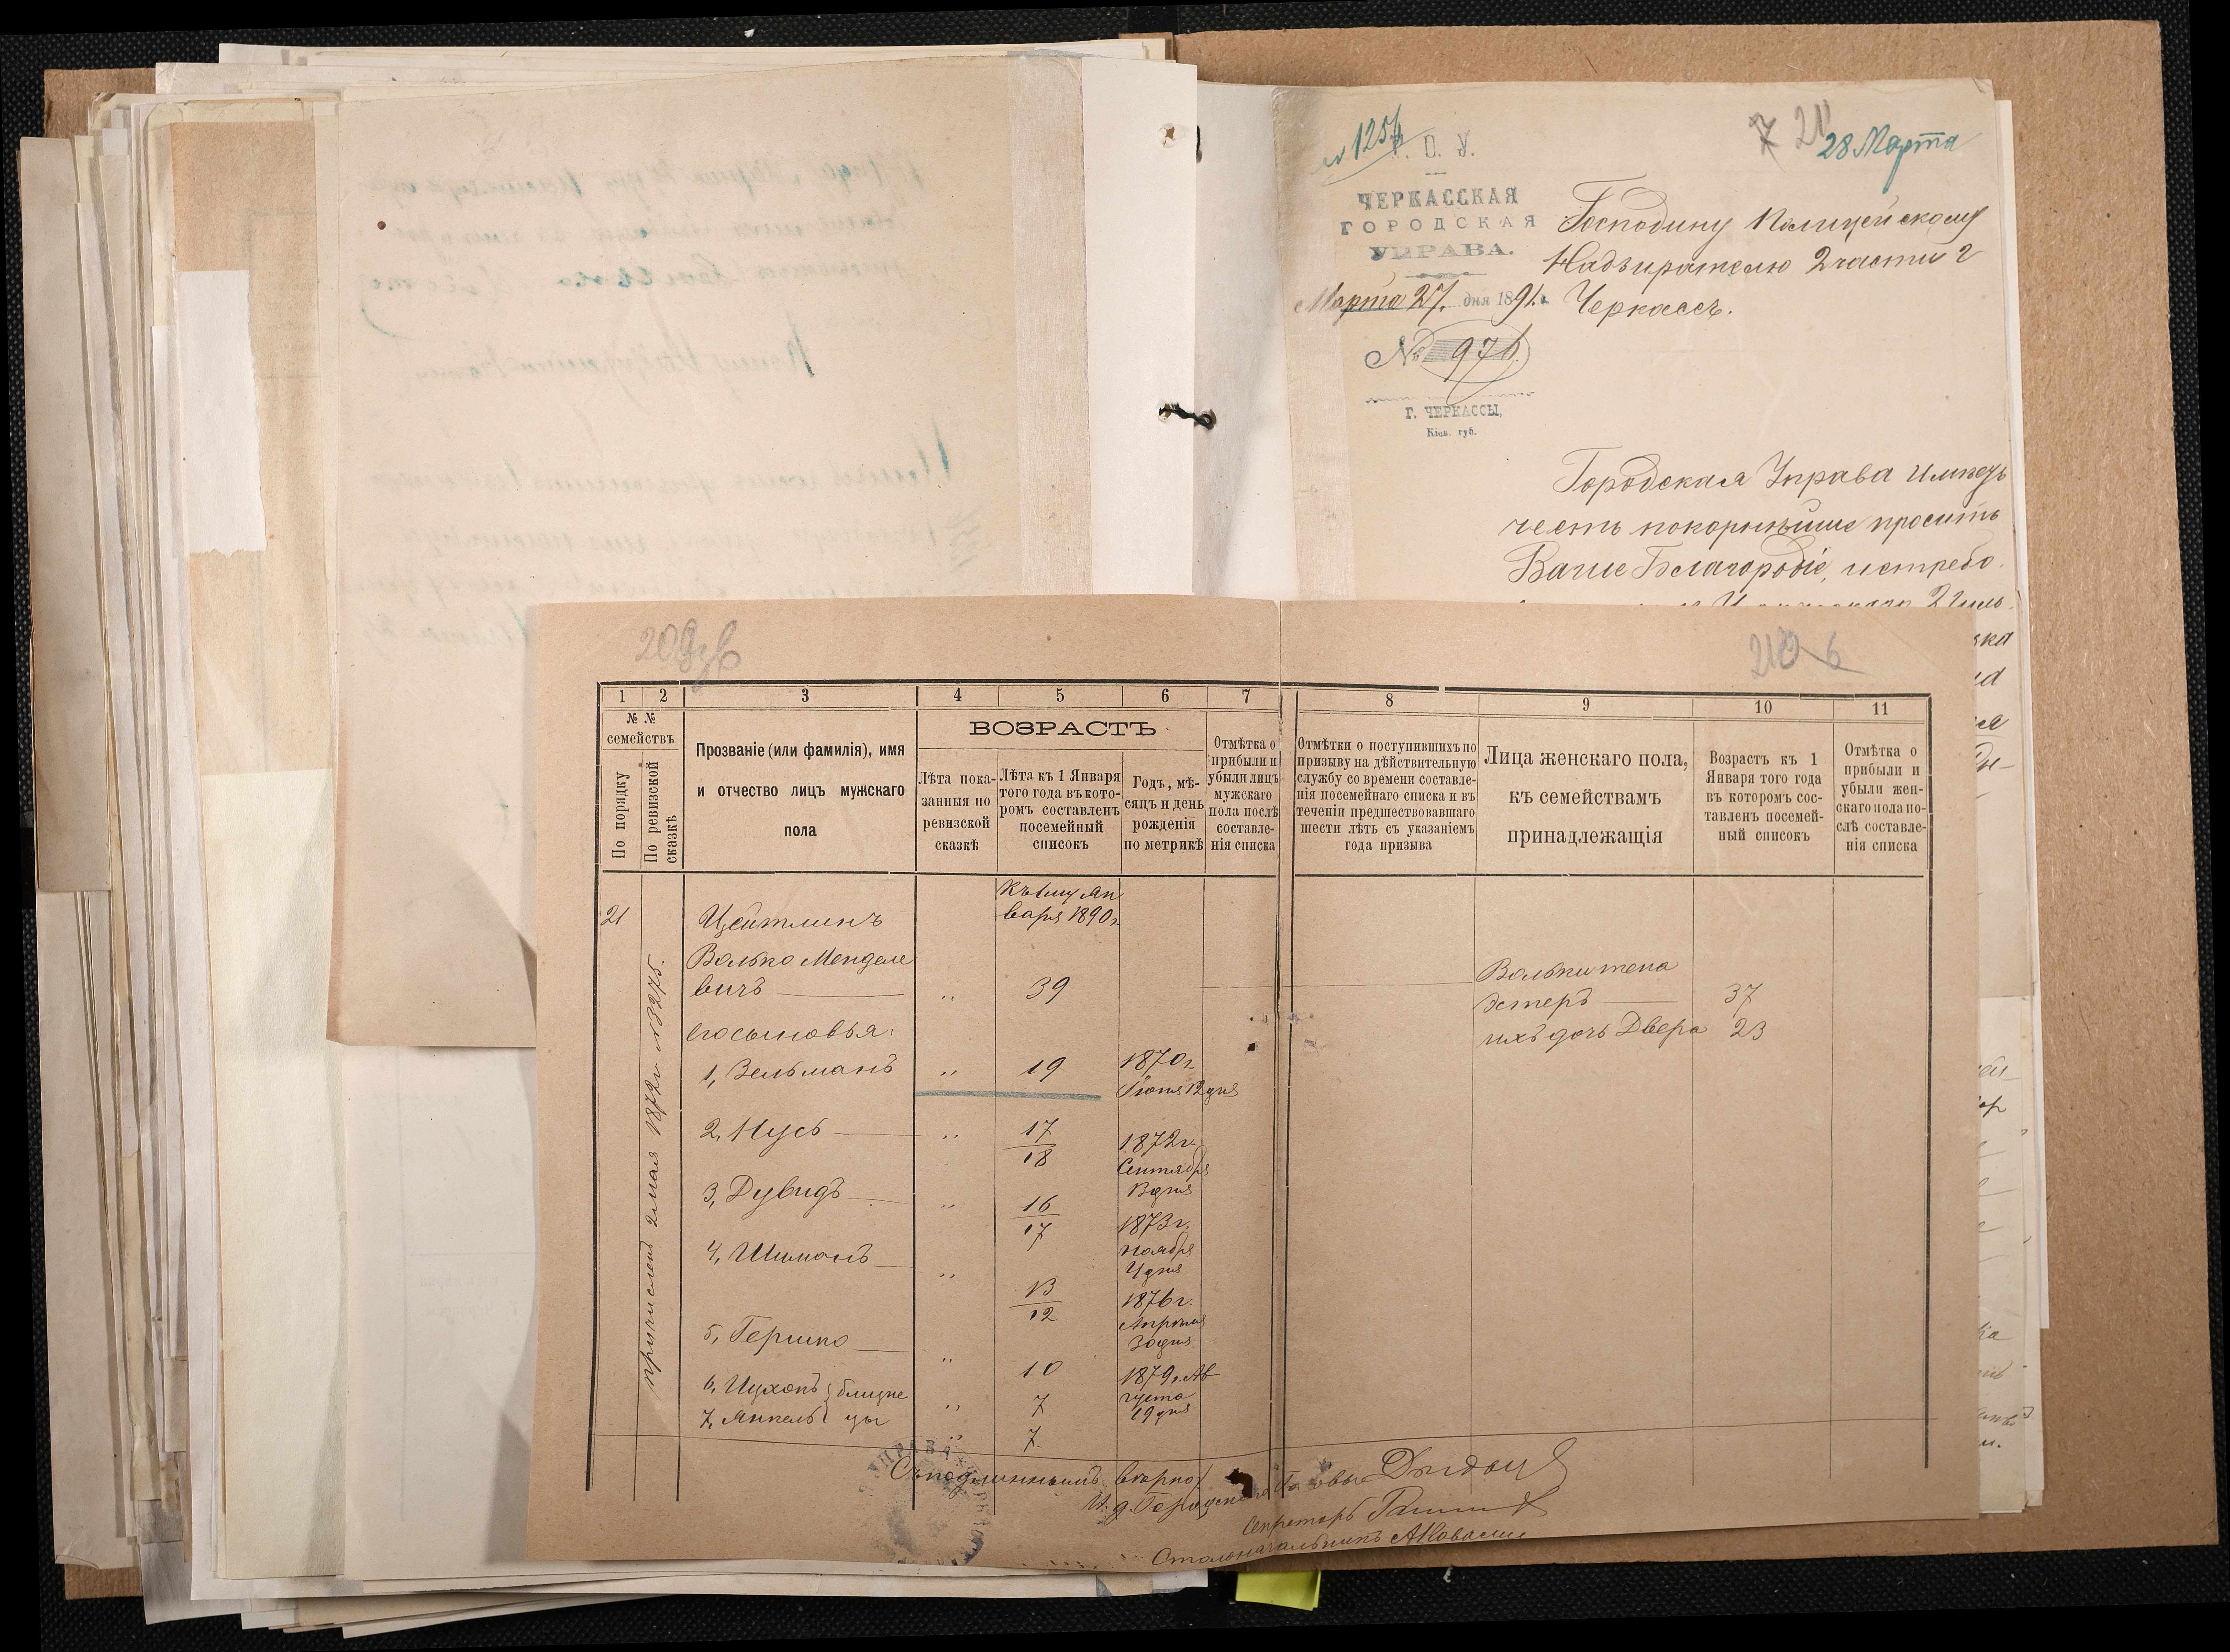 № 1256
Г. О. У.
ЧЕРКАССКАЯ
ГОРОДСКАЯ
УПРАВА.
Марта 27 дня 1891 г.
№ 976
Г. ЧЕРКАССЫ,
Кіев. губ.
7 21
28 Марта
Господину Полицейскому
Надзирателю 2 части г
Черкассъ.
Городская Управа имѣетъ
честь покорнѣйше просить
Ваше Благородіе, истребо
209
210 6
1 2 3 4 5 6 7 8 9 10 11
№ №
семействъ
По порядку
По ревизской сказкѣ
Прозваніе (или фамилія), имя
и отчество лицъ мужскаго
пола
ВОЗРАСТЪ
Лѣта пока-
занныя по
ревизской
сказкѣ
Лѣта къ 1 Января
того года въ кото-
ромъ составленъ
посемейный
списокъ
Годъ, мѣ-
сяцъ и день
рожденія
по метрикѣ
Отмѣтка о
прибыли и
убыли лицъ
мужскаго
пола послѣ
составле-
нія списка
Отмѣтки о поступившихъ по
призыву на дѣйствительную
службу со времени составле-
нія посемейнаго списка и въ
теченіи предшествовавшаго
шести лѣтъ съ указаніемъ
года призыва
Лица женскаго пола,
къ семействамъ
принадлежащія
Возрастъ къ 1
Января того года
въ которомъ сос-
тавленъ посемей-
ный списокъ
Отмѣтка о
прибыли и
убыли жен-
скаго пола по-
слѣ составле-
нія списка
Къ 1му Ян
варя 1890 г.
21
причисленъ 2 мая 1872 г. №3275.
Цейтлинъ
Волько Менделе
вичъ " 39
Вольки жена
Эстеръ 37
ихъ дочь Двера 23
его сыновья:
1, Зельманъ " 19 1870 г.
Іюня 12 дня
2, Нусь " 17/18 1872 г.
Сентября
3 дня
3, Дувидъ " 16/17 1873 г.
Ноября
4 дня
4, Шимонъ " 13/12 1876 г.
Апрѣля
30 дня
5, Гершко " 10 1879 г. Ав
густа
19 дня
6, Цухонъ } близне " 7
7, Янкель } цы " 7.
Съ подлиннымъ вѣрно
И. д. Городскаго Головы
Секретарь
Столоначальникъ